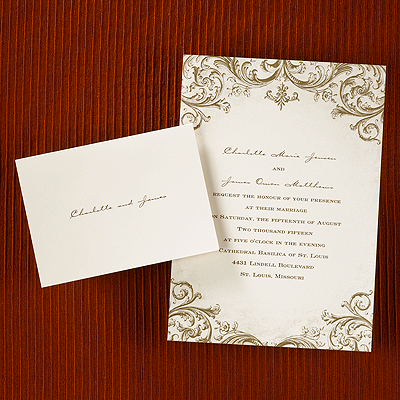 Charlotte and James
Charlotte Marie Jensen
AND
James Owen Matthews
REQUEST THE HONOUR OF YOUR PRESENCE
AT THEIR MARRIAGE
ON SATURDAY, THE FIFTEENTH OF AUGUST
TWO THOUSAND FIFTEEN
AT FIVE O'CLOCK IN THE EVENING
CATHEDRAL BASILICA OF ST. LOUIS
4431 LINDELL BOULEVARD
ST. LOUIS, MISSOURI